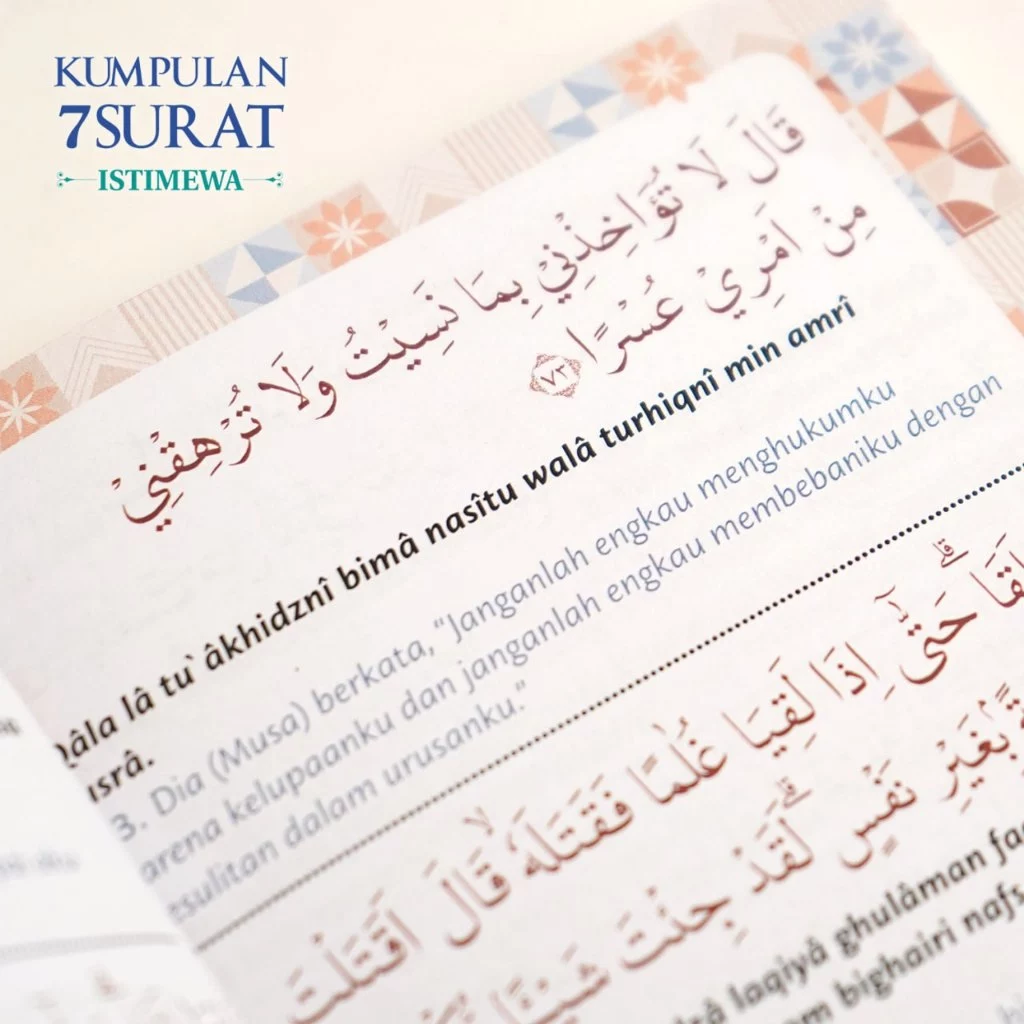 KUMPULAN
7SURAT
ISTIMEWA
قَالَ لَا تُؤَاخِذْنِيْ بِمَا نَسِيْتُ وَلَا تُرْهِقْنِيْ
مِنْ اَمْرِيْ عُسْرًا ٧٣
Qâla lâ tu`âkhidznî bimâ nasîtu walâ turhiqnî min amrî
usrâ.
3. Dia (Musa) berkata, “Janganlah engkau menghukumku
arena kelupaanku dan janganlah engkau membebaniku dengan
esulitan dalam urusanku.”
حَتّٰىٓ اِذَا لَقِيَا غُلٰمًا فَقَتَلَهٗ ۙقَالَ اَقَتَلْتَ
بِغَيْرِ نَفْسٍۗ لَقَدْ جِئْتَ شَيْـًٔا
laqiyâ ghulâman
bighairi